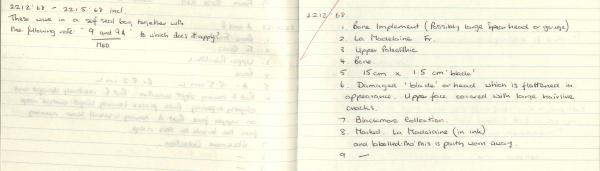 2212'68 - 2215'68 incl.
These were in a self seal bag together with
the following note "9 and 9A" to which does it apply?
MOD
2212'68
1. Bone Implement (Possibly large Spearhead or gouge)
2. La Madelaine Fr.
3. Upper Palaeolithic
4. Bone
5. 15cm x 1.5cm 'blade'
6. Damaged 'blade' or head which is flattened in
appearance. Upper face covered with large hairline
cracks.
7. Blackmore Collection.
8. Marked. La Madelaine (in ink)
and labelled. this is partly worn away.
9 —